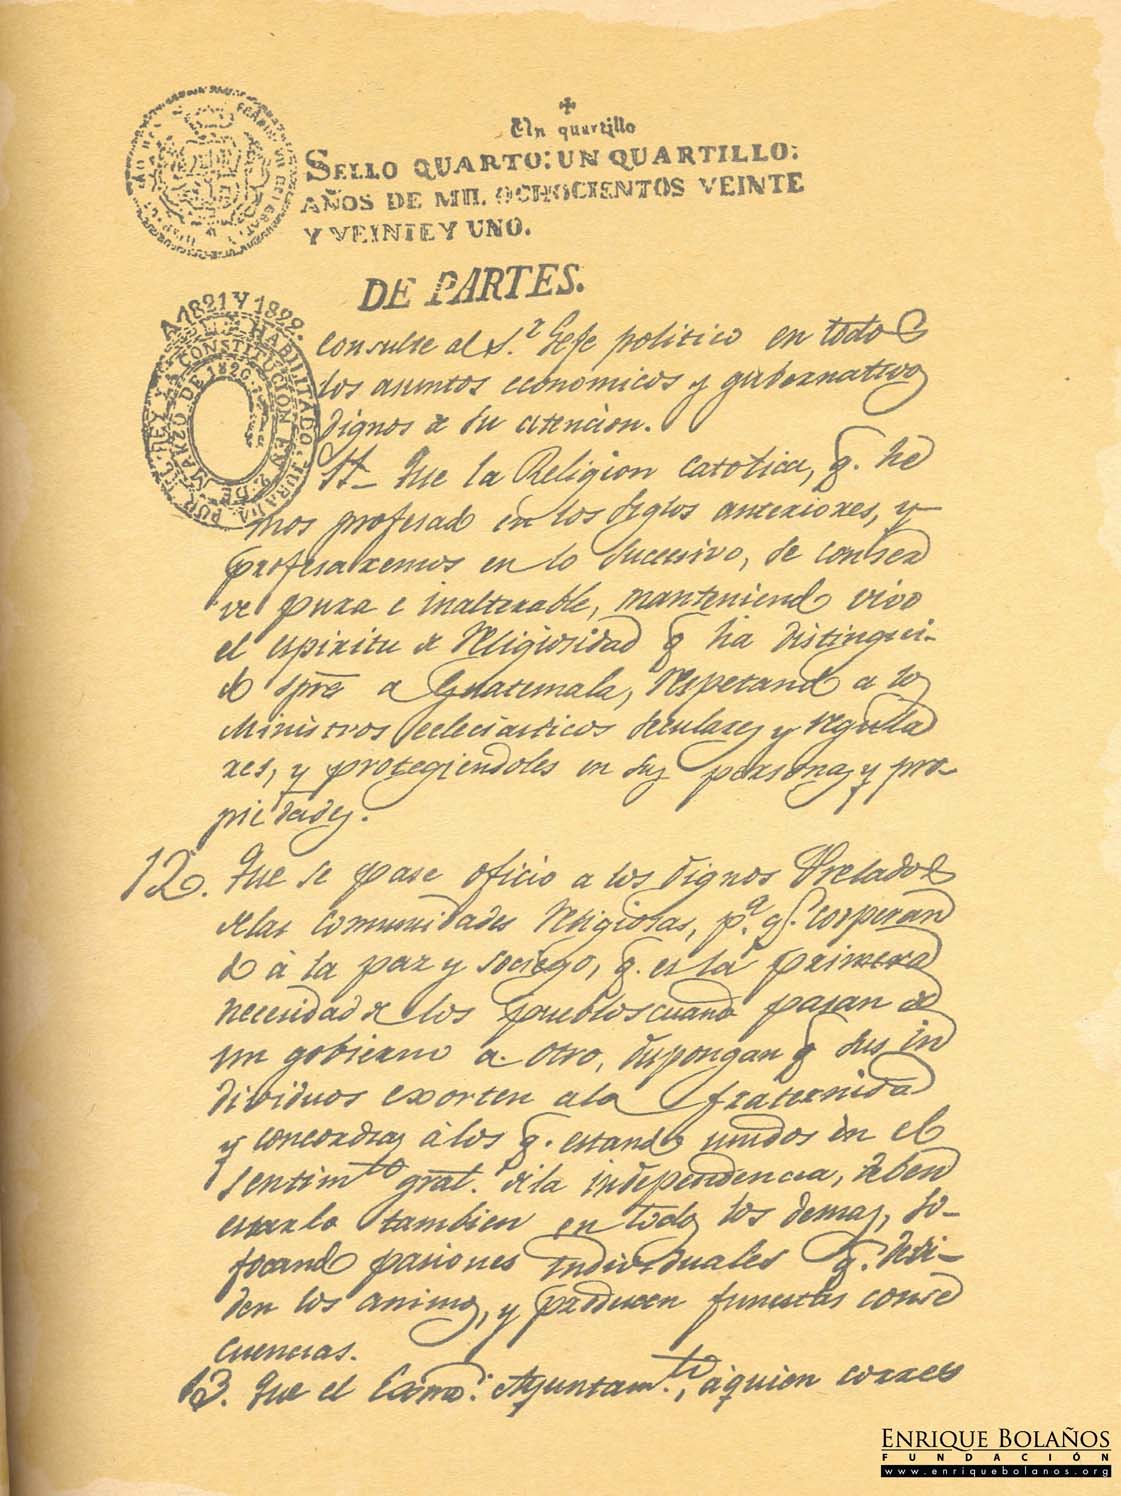 Un quartillo
SELLO QUARTO: UN QUARTILLO:
AÑOS DE MIL OCHOCIENTOS VEINTE
Y VEINTE Y UNO.
DE PARTES.
A 1821 Y 1822.
HABILITADO, JURADA POR EL REY LA CONSTITUCION EN 9 DE MARZO DE 1820.
consulte al S.r Gefe politico en todos
los asuntos economicos y gubernativos
dignos de su atencion.
11- Que la Religion catolica, q. he
mos profesado en los siglos anteriores, y
profesaremos en lo sucesivo, se conser
ve pura e inalterable, manteniendo vivo
el espiritu de religiosidad q ha distingui-
do spre a Guatemala, respetando a los
Ministros eclesiasticos seculares y regula
res, y protegiendoles en sus personas y pro-
piedades.
12. Que se pase oficio a los dignos Prelados
de las comunidades religiosas, p.a q. cooperan
do à la paz y sosiego, q. es la primera
necesidad de los pueblos cuando pasan de
un gobierno a otro, dispongan q sus in
dividuos exorten a la fraternidad
y concordia à los q. estando unidos en el
sentim.to gral. de la independencia, deben
estarlo tambien en todos los demas, so-
focando pasiones individuales q. divi-
den los animos, y producen funestas conse
cuencias.
13. Que el Exmo. Ayuntam.to, à quien corres
ENRIQUE BOLAÑOS
FUNDACIÓN
www.enriquebolanos.org